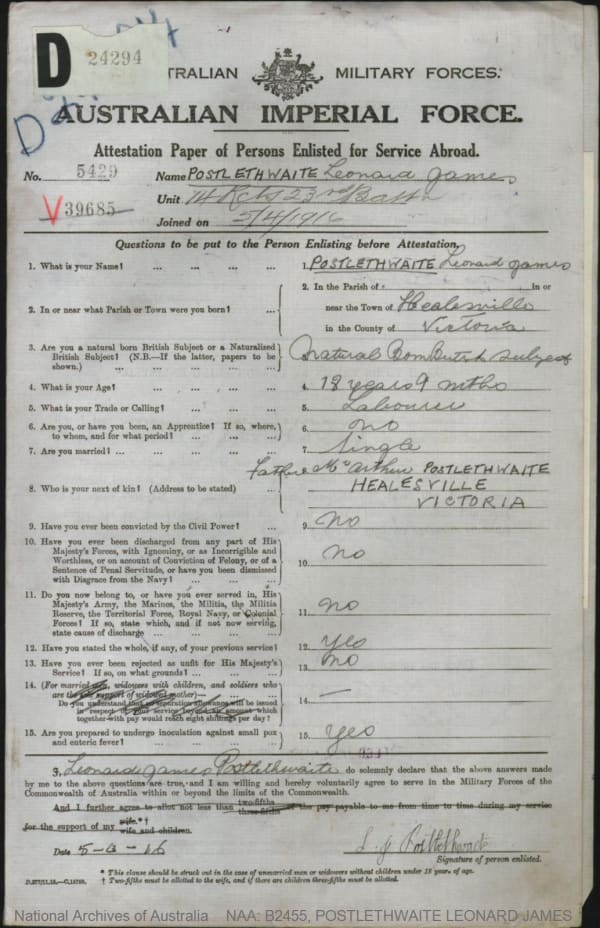 D 24294
AUSTRALIAN MILITARY FORCES.
AUSTRALIAN IMPERIAL FORCE.
Attestation Paper of Persons Enlisted for Service Abroad.
No. 5429 Name POSTLETHWAITE Leonard James
V39685 Unit 14 Rets 23rd Battn
Joined on 5/4/1916
Questions to be put to the Person Enlisting before Attestation.
1. What is your Name? ... ... ... ... 1. POSTLETHWAITE Leonard James
2. In or near what Parish or Town were you born? ... 2. In the Parish of in or
near the Town of Healesville
in the County of Victoria
3. Are you a natural born British Subject or a Naturalized
British Subject? (N.B.—If the latter, papers to be
shown.) ... ... ... ... ... Natural Born British subject
4. What is your Age? ... ... ... ... 4. 18 years 9 mths
5. What is your Trade or Calling? ... ... ... 5. Labourer
6. Are you, or have you been, an Apprentice? If so, where,
to whom, and for what period? ... ... ... 6. no
7. Are you married? ... ... ... ... ... 7. Single
8. Who is your next of kin? (Address to be stated) ... Father Mc Arthur POSTLETHWAITE
HEALESVILLE
VICTORIA
9. Have you ever been convicted by the Civil Power? ... 9. no
10. Have you ever been discharged from any part of His
Majesty's Forces, with Ignominy, or as Incorrigible and
Worthless, or on account of Conviction of Felony, or of a
Sentence of Penal Servitude, or have you been dismissed
with Disgrace from the Navy? ... ... ... 10. no
11. Do you now belong to, or have you ever served in, His
Majesty's Army, the Marines, the Militia, the Militia
Reserve, the Territorial Force, Royal Navy, or Colonial
Forces? If so, state which, and if not now serving,
state cause of discharge ... ... ... ... 11. no
12. Have you stated the whole, if any, of your previous service? 12. yes
13. Have you ever been rejected as unfit for His Majesty's
Service? If so, on what grounds? ... ... ... 13. no
14. (For married men, widowers with children, and soldiers who
are the sole support of widowed mother)—
Do you understand that no separation allowance will be issued
in respect of your service beyond an amount which
together with pay would reach eight shillings per day? 14. —
15. Are you prepared to undergo inoculation against small pox
and enteric fever? ... ... ... ... 15. Yes
I, Leonard James Postlethwaite do solemnly declare that the above answers made
by me to the above questions are true, and I am willing and hereby voluntarily agree to serve in the Military Forces of the
Commonwealth of Australia within or beyond the limits of the Commonwealth.
And I further agree to allot not less than two-fifths three-fifths of the pay payable to me from time to time during my service
for the support of my wife.*† wife and children.
Date L. J Postlethwaite
Signature of person enlisted.
* This clause should be struck out in the case of unmarried men or widowers without children under 18 years of age.
† Two-fifths must be allotted to the wife, and if there are children three-fifths must be allotted.
National Archives of Australia NAA: B2455, POSTLETHWAITE LEONARD JAMES